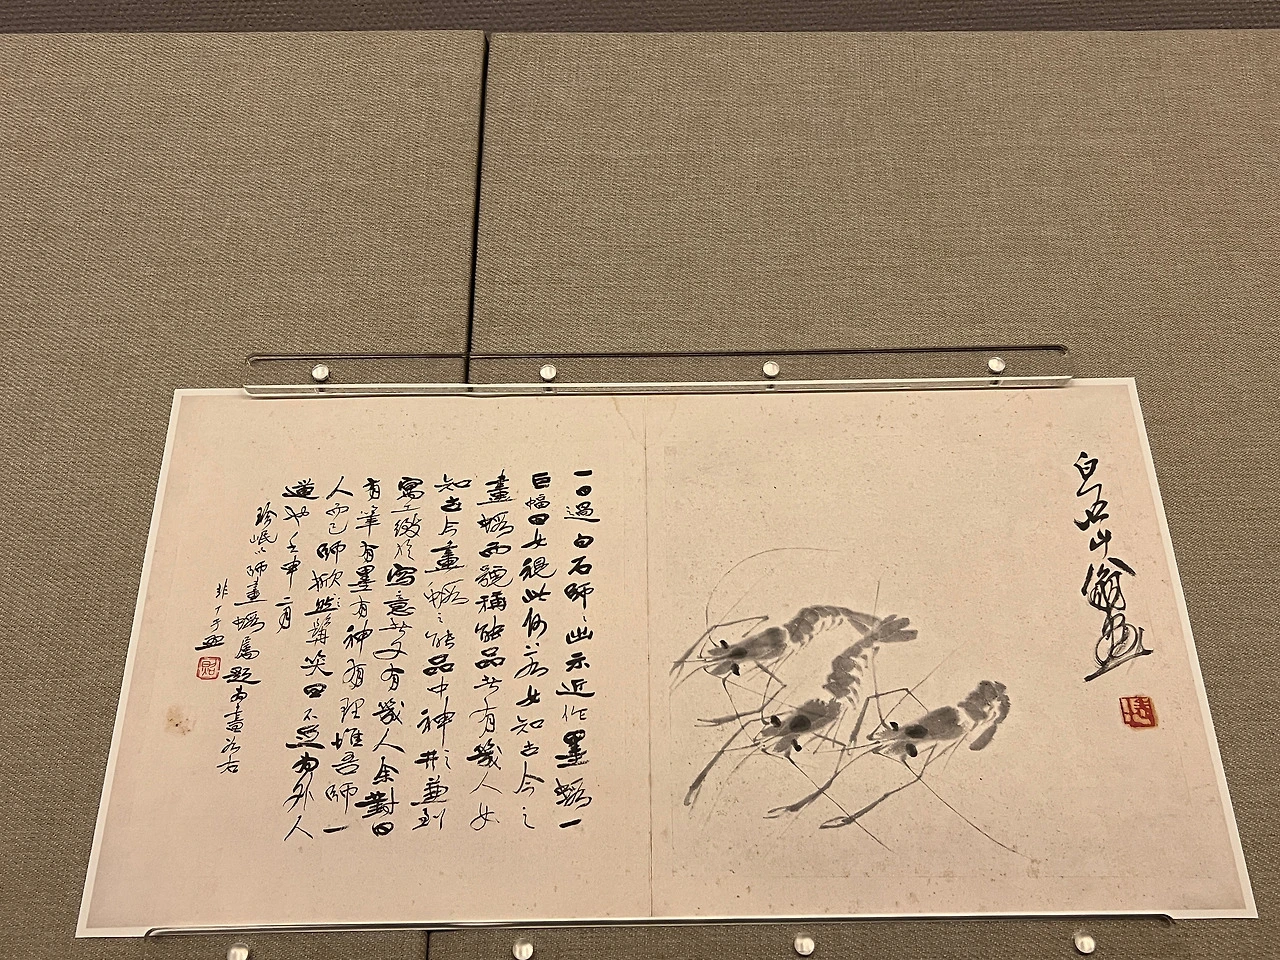 白石山翁畫
一日過白石師〻出示近作墨蝦一
巨幅曰女視此何女知古今之
畫蝦而號稱能品者有幾人女
知古今畫蝦能品中神并兼到
寫工緻於寫意者又有幾人余對曰
有筆有墨有神有理惟吾師一
人而已師掀然髯笑曰不足為外人
道也壬申二月
珍岷以師畫蝦屬題為書於右
非厂于照